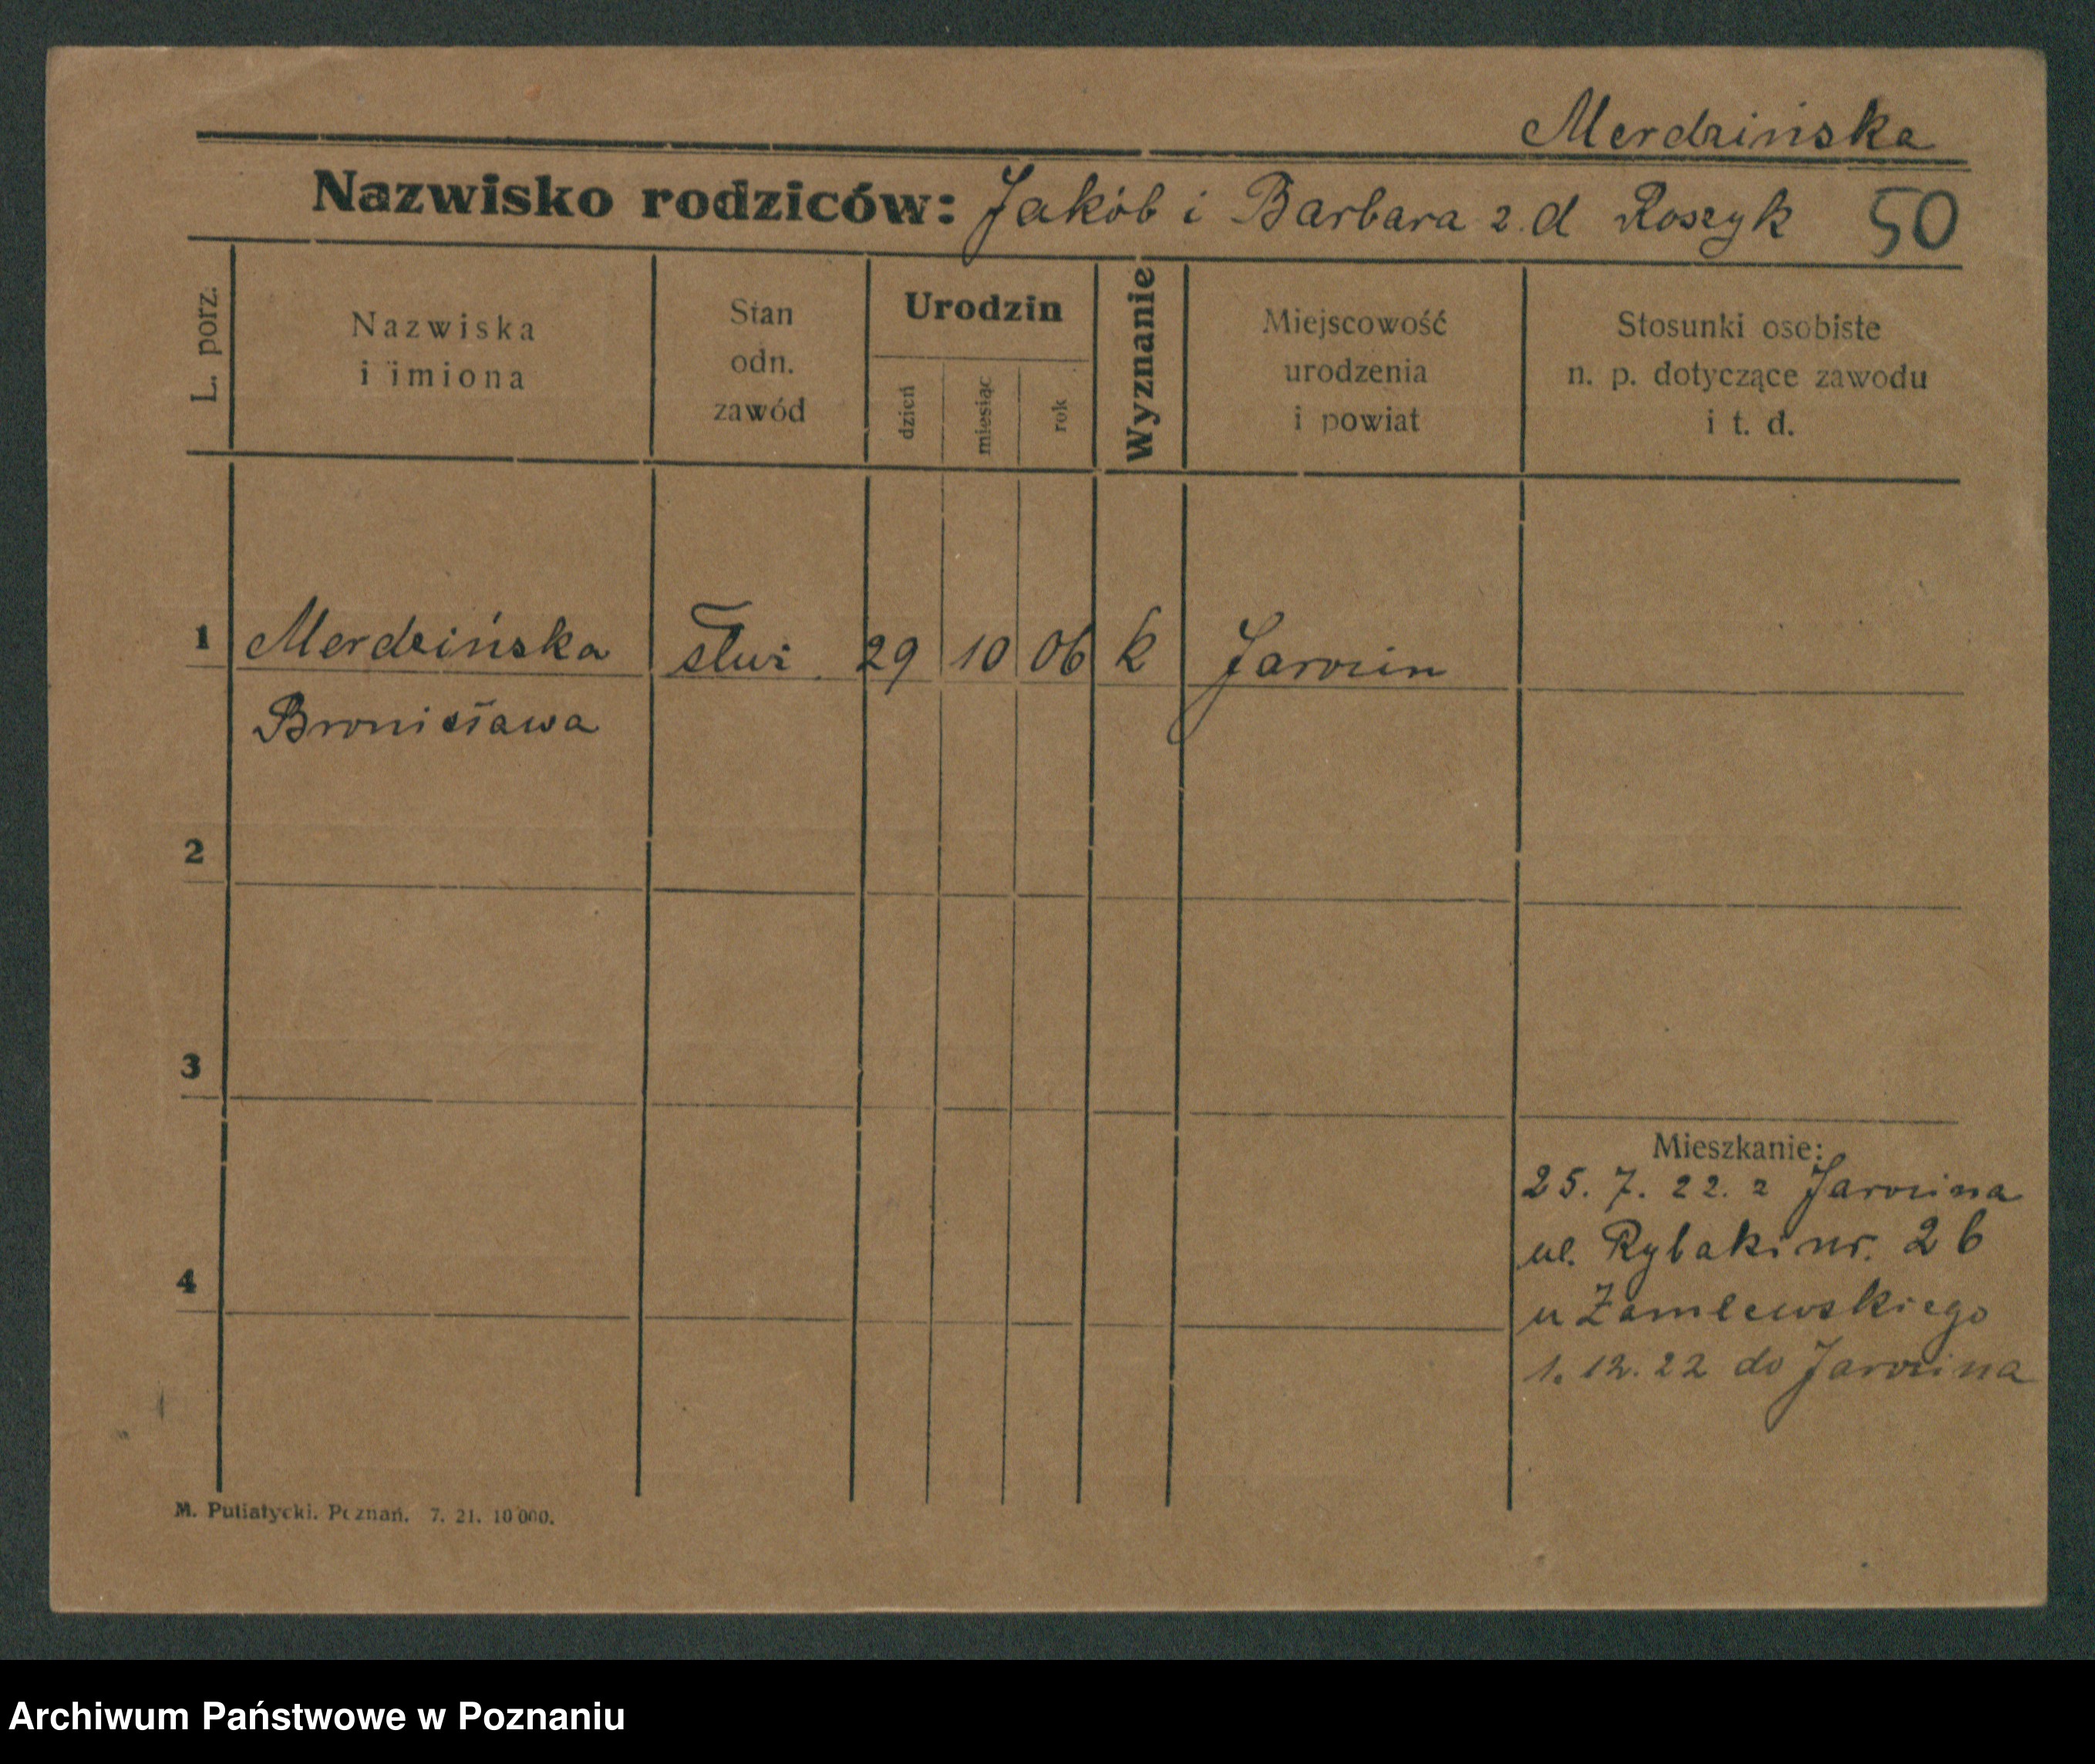 Merdzińska
Nazwisko rodziców: Jakób i Barbara z. d Roszyk 50
L. porz.
Nazwiska
i imiona
Stan
odn.
zawód
Urodzin
dzień
miesiąc
rok
Wyznanie
Miejscowość
urodzenia
i powiat
Stosunki osobiste
n. p. dotyczące zawodu
i t. d.
1 Merdzińska służ. 29 10 06 k Jarocin
Bronisława
2
3
4
Mieszkanie:
25. 7. 22. z Jarocina
ul. Rybaki nr. 26
u
1. 12. 22 do Jarocina
M. Putiatycki. Poznań. 7. 21. 10 000.
Archiwum Państwowe w Poznaniu